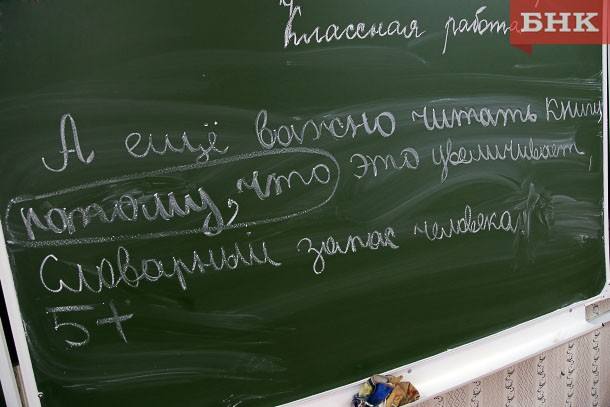 БНК
Классная работа
А ещё важно читать книги
потому, что это увеличивает,
словарный запас человека.
5+